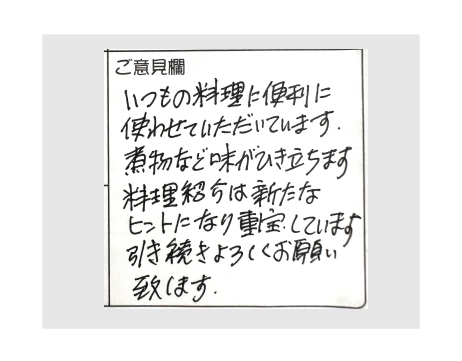 ご意見欄
いつもの料理に便利に
使わせていただいています.
煮物など味がひき立ちます
料理紹介は新たな
ヒントになり重宝しています
引き続きよろしくお願い
致します.